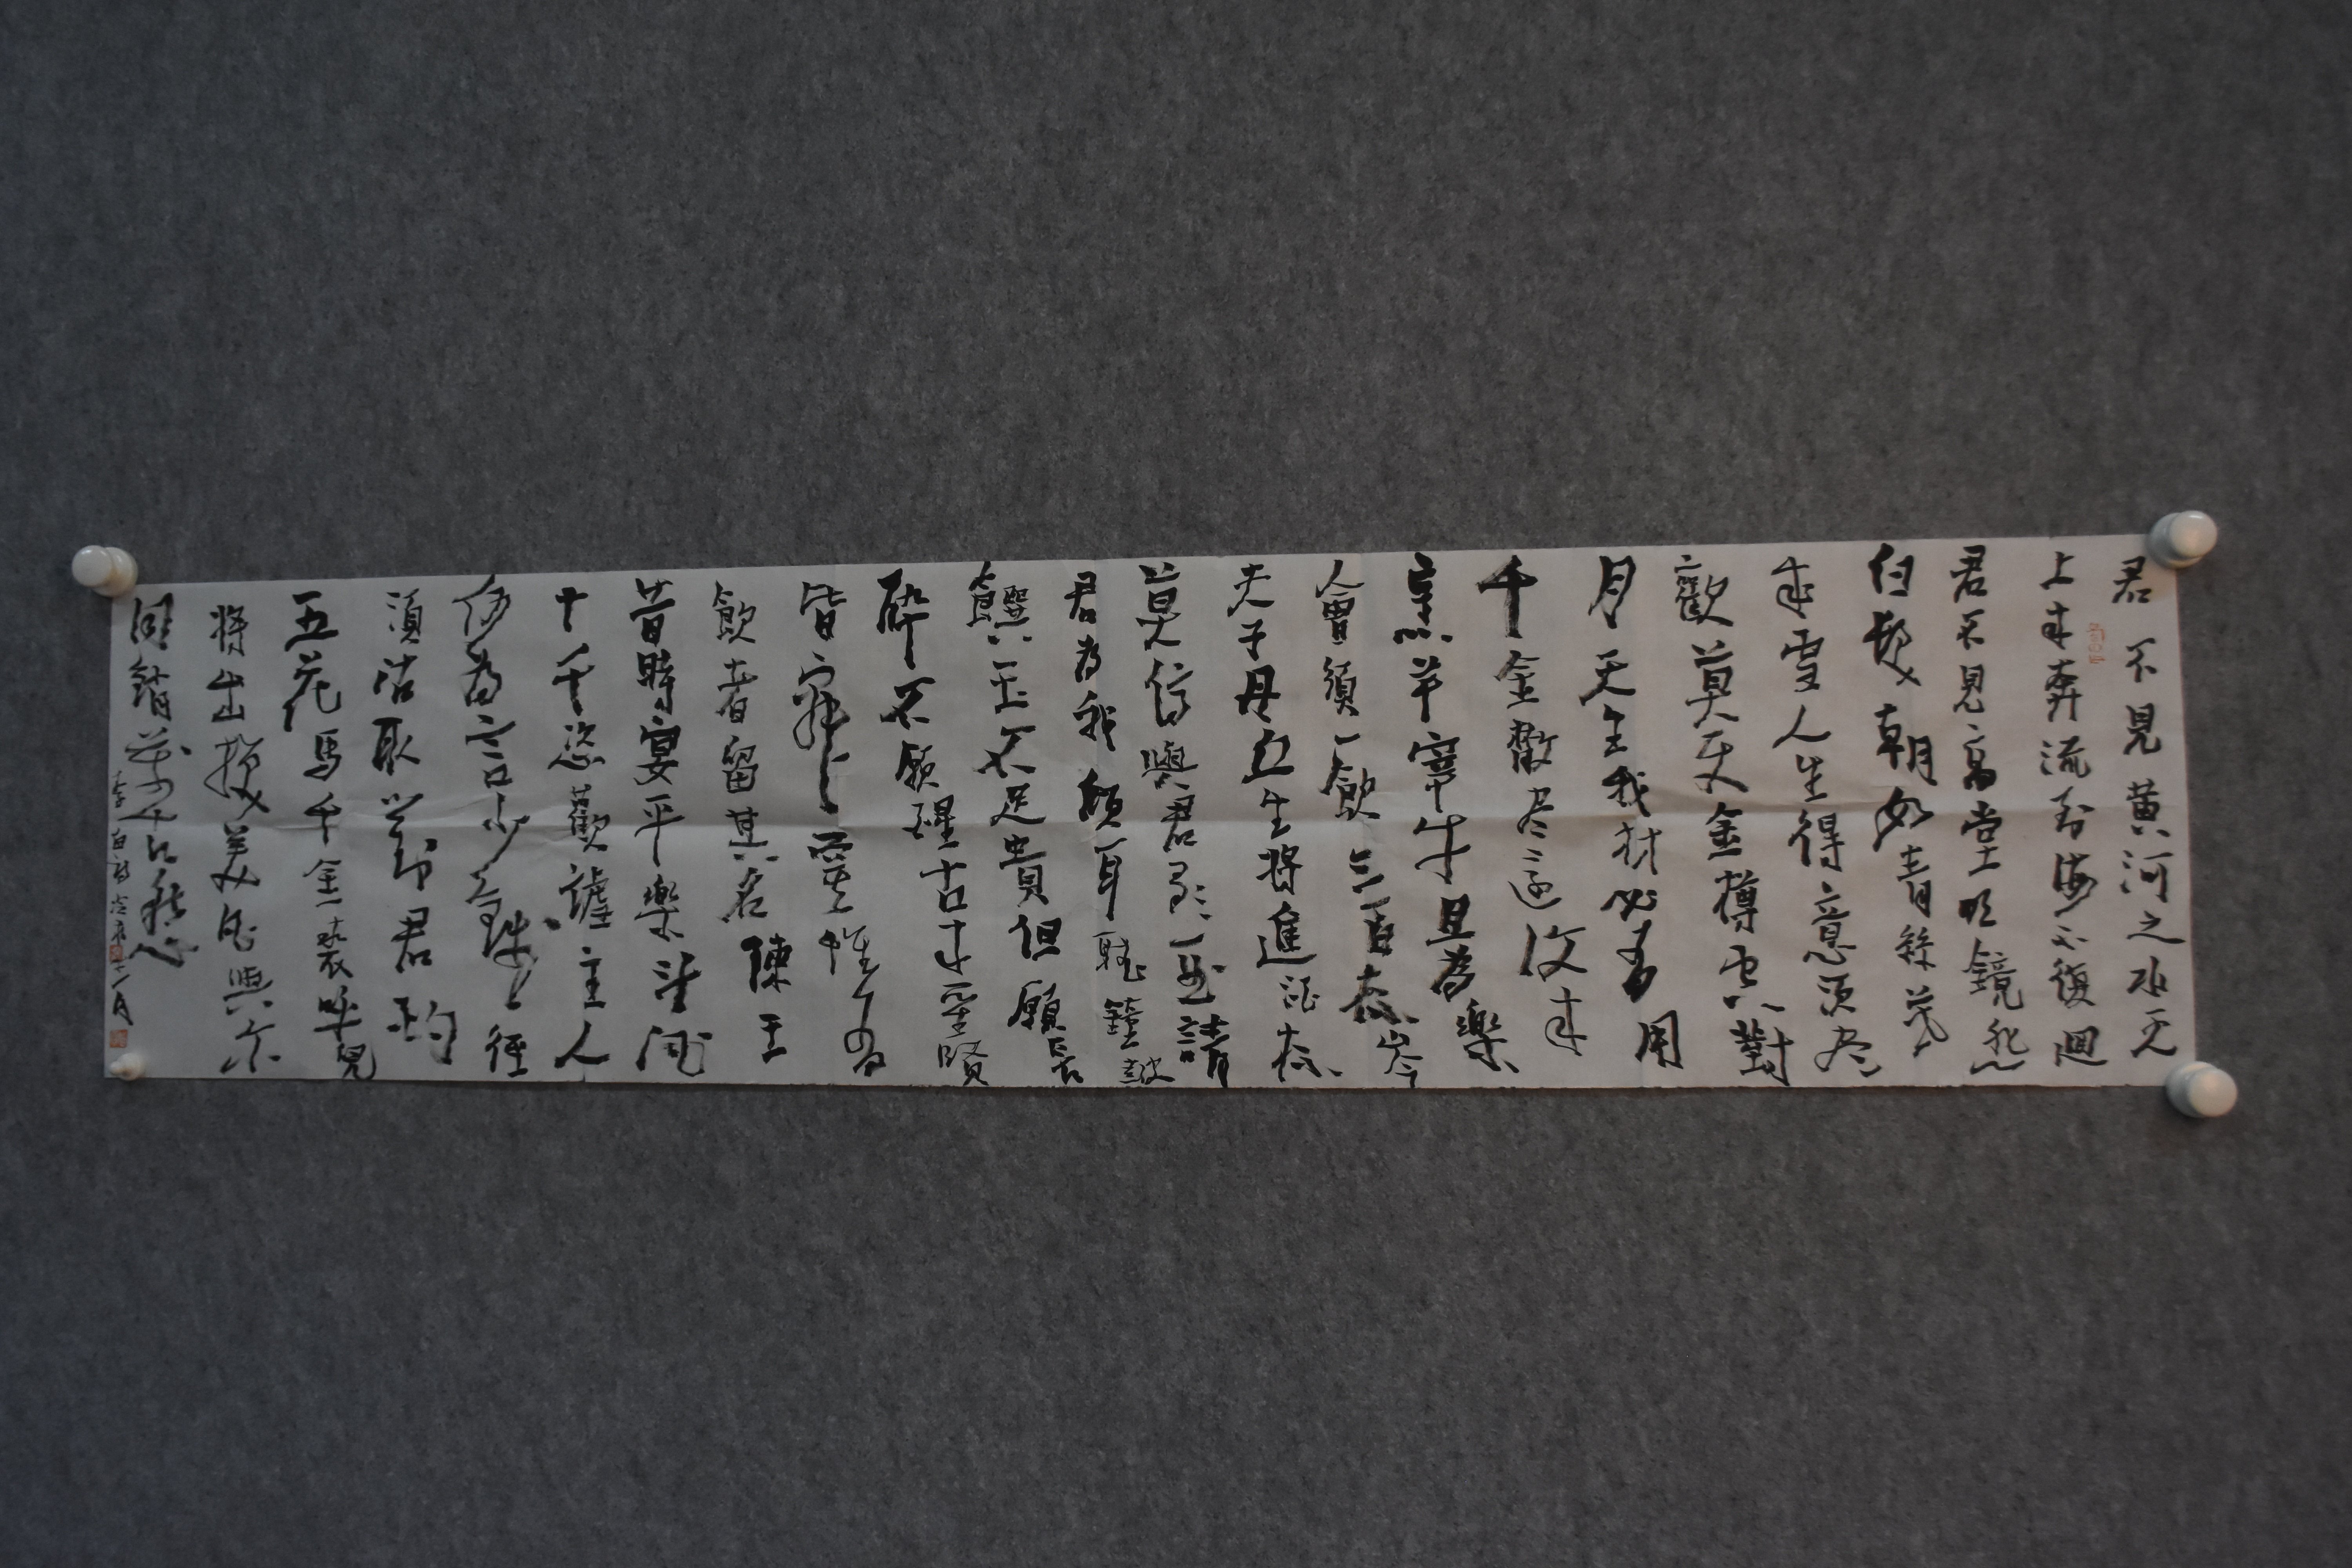 君不見黄河之水天
上来奔流到海不復迴
君不見高堂明鏡悲
白髮朝如青絲暮
成雪人生得意須盡
歡莫使金樽空對
月天生我材必有用
千金散尽還復来
烹羊宰牛且為樂
會須一飲三百杯岑
夫子丹丘生將進酒杯
莫停與君歌一曲請
君為我傾耳聽鐘鼓
饌玉不足貴但願長
醉不願醒古来聖賢
皆寂寞惟有
飲者留其名陳王
昔時宴平樂斗酒
十千恣歡謔主人
何為言少錢徑
須沽取對君酌
五花馬千金裘呼兒
將出換美酒與尔
同銷萬古愁
李白詩 十一月